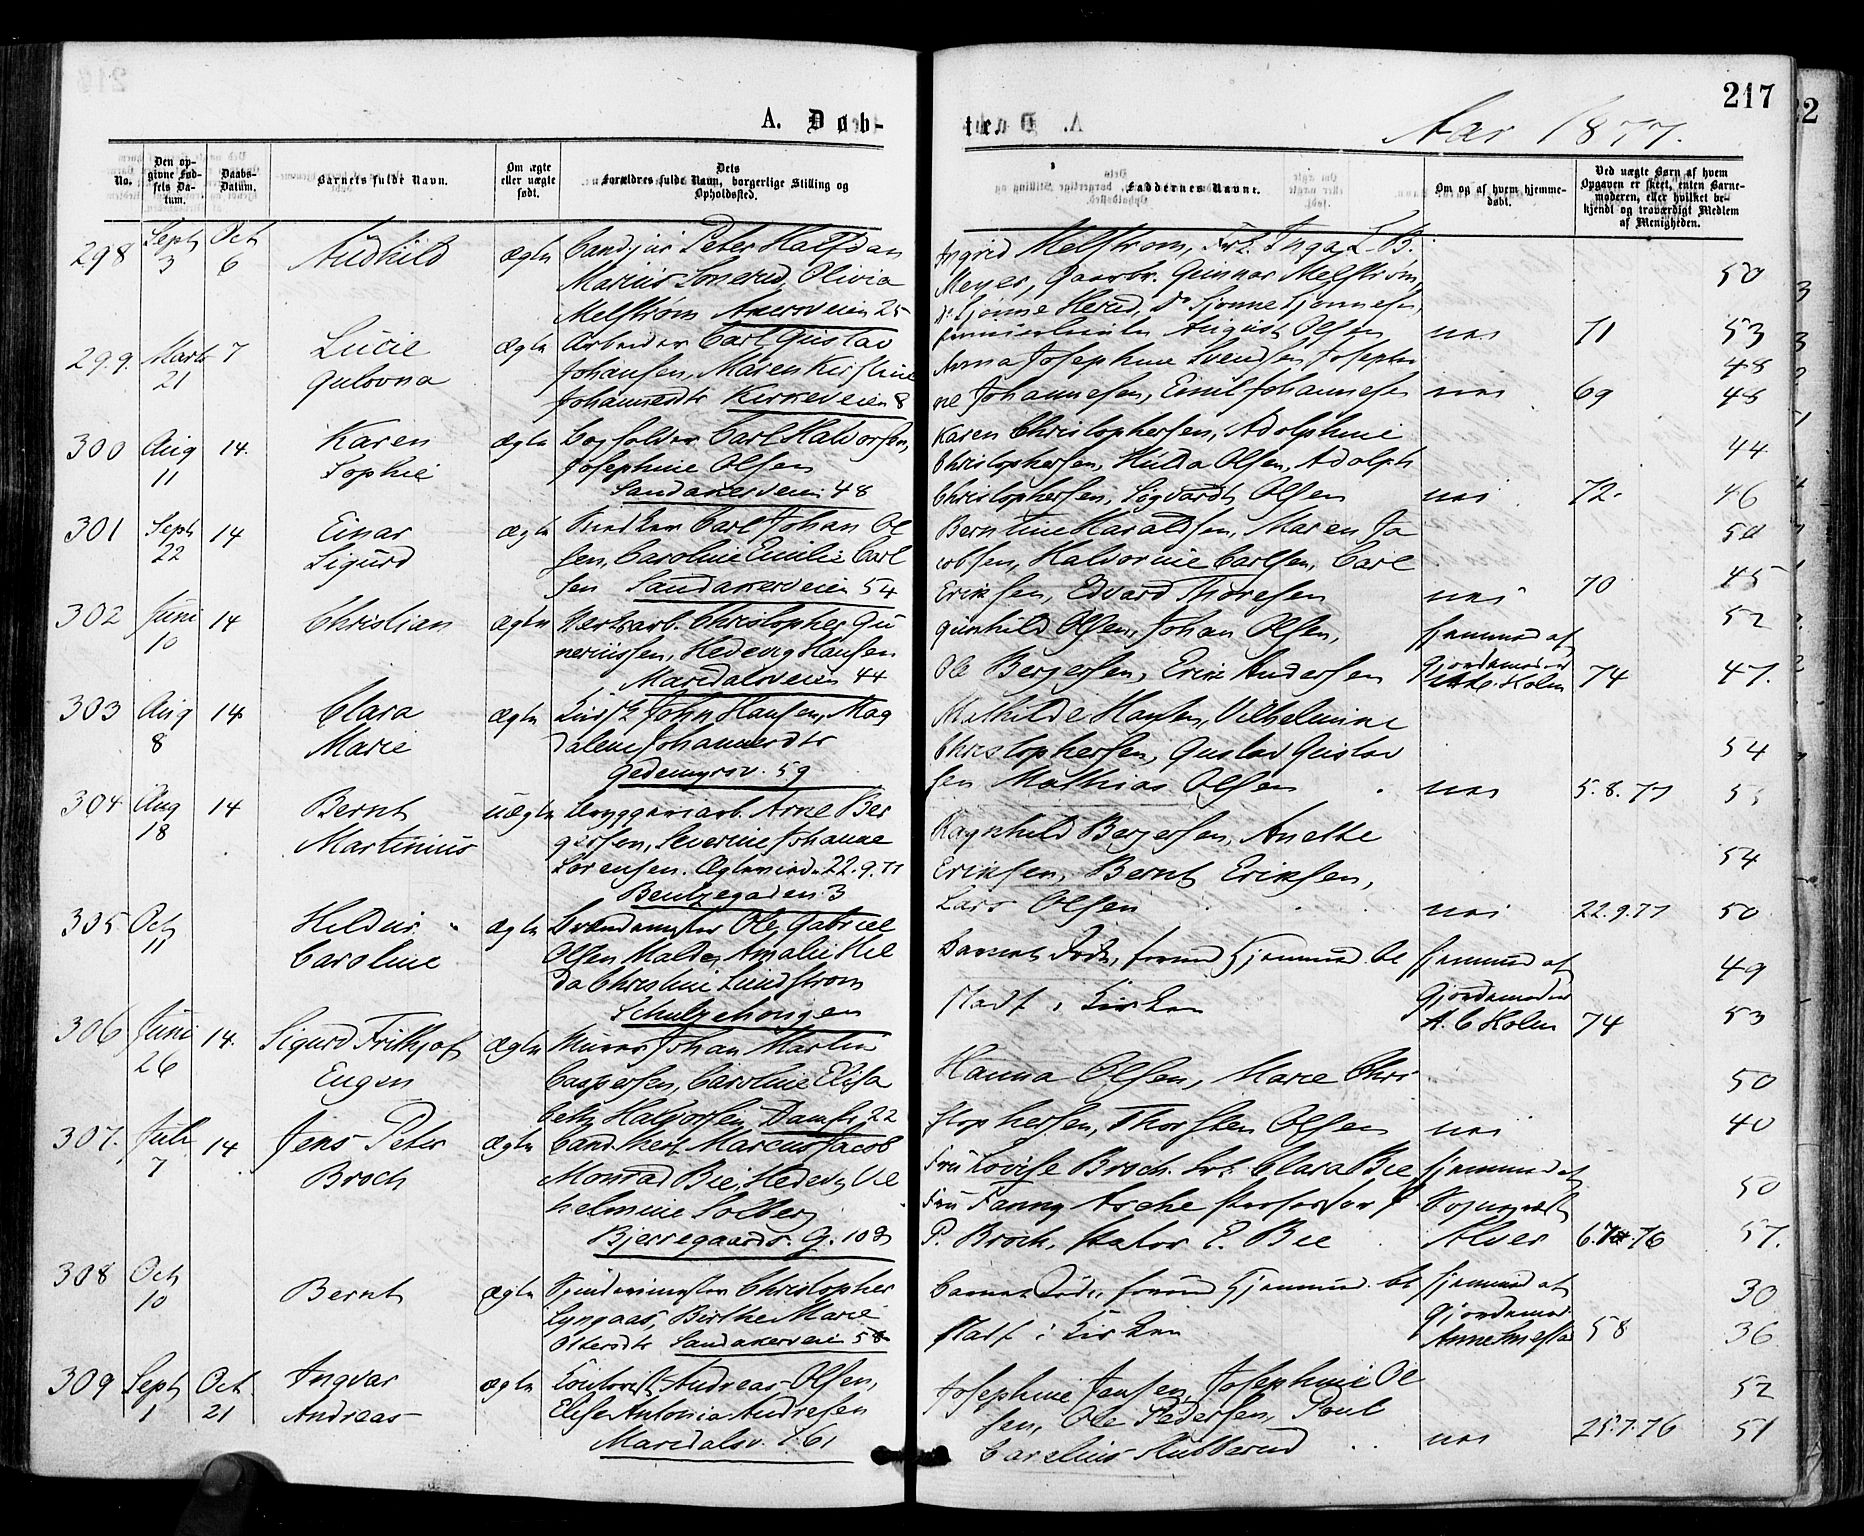 217
A. Døb-
te.
Aar 1877.
No.
Den op-
givne Fød-
sels Da-
tum.
Daabs-
Datum.
Barnets fulde Navn.
Om ægte
eller uægte
født.
Dets
Forældres fulde Navn, borgerlige Stilling og
Opholdssted.
Faddernes Navne.
Om og af hvem hjemme-
døbt.
Ved uægte Børn af hvem
Opgaven er skeet, enten Barne-
moderen, eller hvilket be-
kjendt og troværdigt Medlem
af Menigheden.
298 Sept 3 Oct 6 Audhild ægte
Cand jur Peter Halfdan
Marius Smerud, Olivia
Melstrøm Akersveien 25
Ingrid Melstrøm, Frk. Inga L. B.
Meyer, Gaardbr. Gunnar Melstrøm,
50
299. Marts 21 7 Lucie
Gulovna ægte
Arbeider Carl Gustav
Johansen, Maren Kirstine
Johannesdtr Kirkeveien 8
August Olsen nei 71 53
Anna Josephine Svendsen, Josephi 48
ne Johannesen, Emil Johannesen nei 69 48
300 Aug 11 14. Karen
Sophie ægte
Logfolder Carl Halvorsen,
Josephine Olsen
Sandakerveien 48
Karen Christophersen, Adolphine
Christophersen, Hulda Olsen, Adolph 44
Christophersen, Sigvardt Olsen nei 72. 46
301 Sept 22 14 Einar
Sigurd ægte
Snedker Carl Johan Ol
sen, Caroline Emilie Carl
sen Sandakerveien 54
Berntine Haraldsen, Maren Ja
cobsen, Halvorine Carlsen, Carl
Eriksen, Edvard Thoresen nei 70 45
302 Juni 10 14 Christian ægte
Værksarb. Christopher Gu
neriussen, Hedevig Hansen
Maridalsveien 44
Gunhild Olsen, Johan Olsen, hjemmed af 52
Ole Bergersen, Erik Andersen Gjordemoder
A. C. Holm 74 47.
303 Aug 8 14 Clara
Marie ægte
Kudsk John Hansen, Mag
dalene Johannesdtr
Gedemyrsv. 59
Mathilde Hansen, Vilhelmine
Christophersen, Gustav Gustav 54
sen Mathias Olsen nei 5.8.77
304 Aug 18 14 Bernt
Martinius uægte
Bryggeriarb. Arne Ber
gersen, Severine Johanne
Sørensen. Ægteviede 22.9.77
Bentzegaden 3
Ragnhild Bergersen, Anette
Eriksen, Bernt Eriksen, 54
Lars Olsen nei 22.9.77 50
305 Oct 11 Hildur
Caroline ægte
Brændemester Ole Gabriel
Olsen Malde, Amalie Hil
da Christine Lundstrøm
Schultzehougen
Barnet død, forend Hjemmed. be hjemmed af 49
stadf i Kirken Gjordemoder
A. C Holm 74 53
306 Juni 26 14. Sigurd Frithjof
Eugen ægte
Murer Johan Martin
Caspersen, Caroline Elisa
beth Halvorsen, Damstr. 22
Hanna Olsen, Marie Chri 50
stophersen, Thorsten Olsen nei 40
307. Juli 7 14 Jens Peter
Broch ægte
Cand. theol Marcus Jacob
Monrad Bie, Hedevig Vil
helmine Solberg
Bjerregaards. G. 10 B
Fru Lovise Broch, Frk. Clara Bie, hjemmed af
Fru Fanny Asche Professor J. Sognepræst 50
P. Broch, Pastor E. Bie Alver 6.7.76 57.
308 Oct 10 Bernt ægte
Spindemester Christopher
Lyngaas, Birthe Marie
Ottersdtr Sandakerveien 58
Barnet død, forend Hjemmed. be hjemmed af 30
stadf i Kirken Gjordemod. 58 36
309 Sept 1 Oct. 21 Ingvar
Andreas ægte
Andreas Olsen,
Elise Antonia Andresen
Maridalsv. 161
Josephine Jansen, Josephine Ol 52
sen, Ole Pedersen, Poul
Carelius Stubberud nei 25.7.76 51